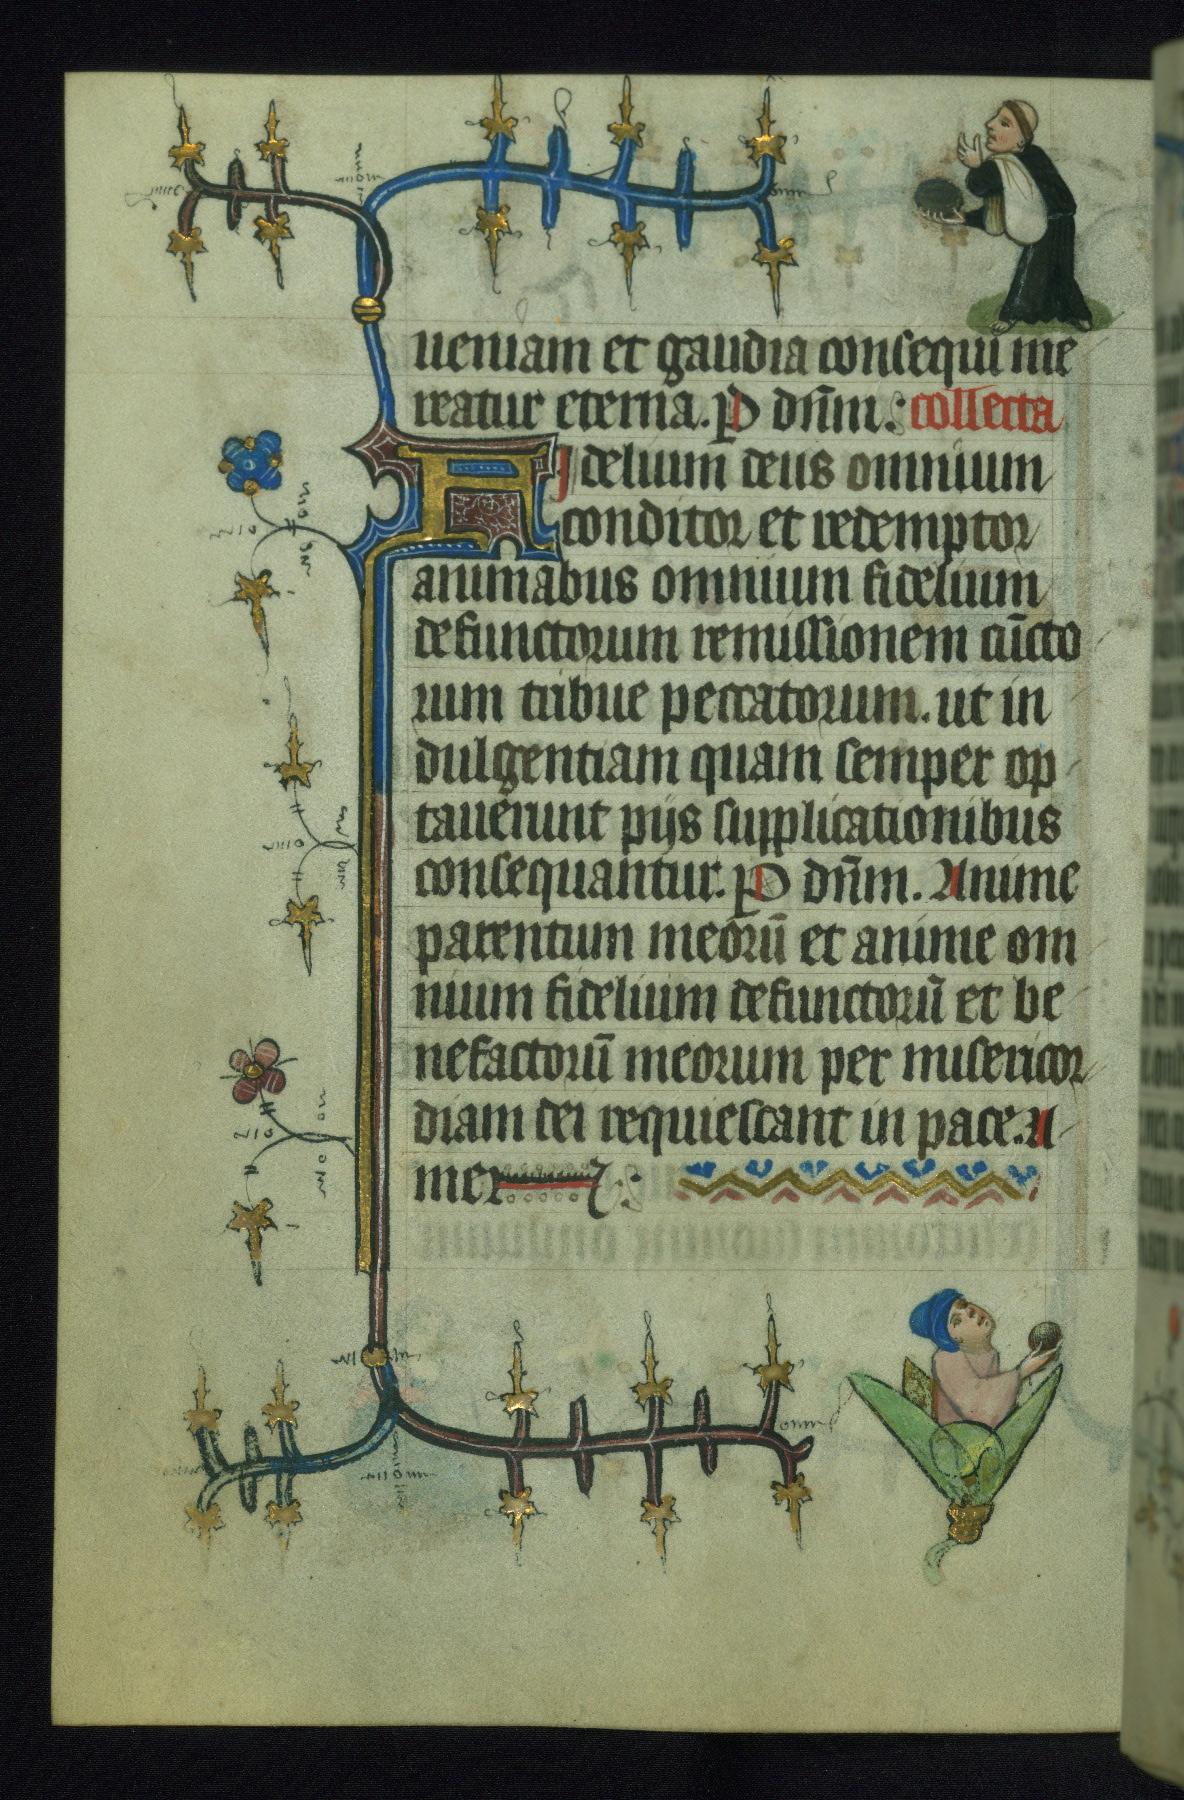 ueniam et gaudia consequi me
reatur eterna. P dn̄m. collecta
Fidelium deus omnium
conditor et redemptor
animabus omnium fidelium
defunctorum remissionem cūcto
rum tribue peccatorum. ut in
dulgentiam quam semper op
tauerunt pijs supplicationibus
consequantur. P dn̄m. Anime
parentum meorū et anime om
nium fidelium defunctorū et be
nefactorū meorum per misericor
diam dei requiescant in pace. A
men